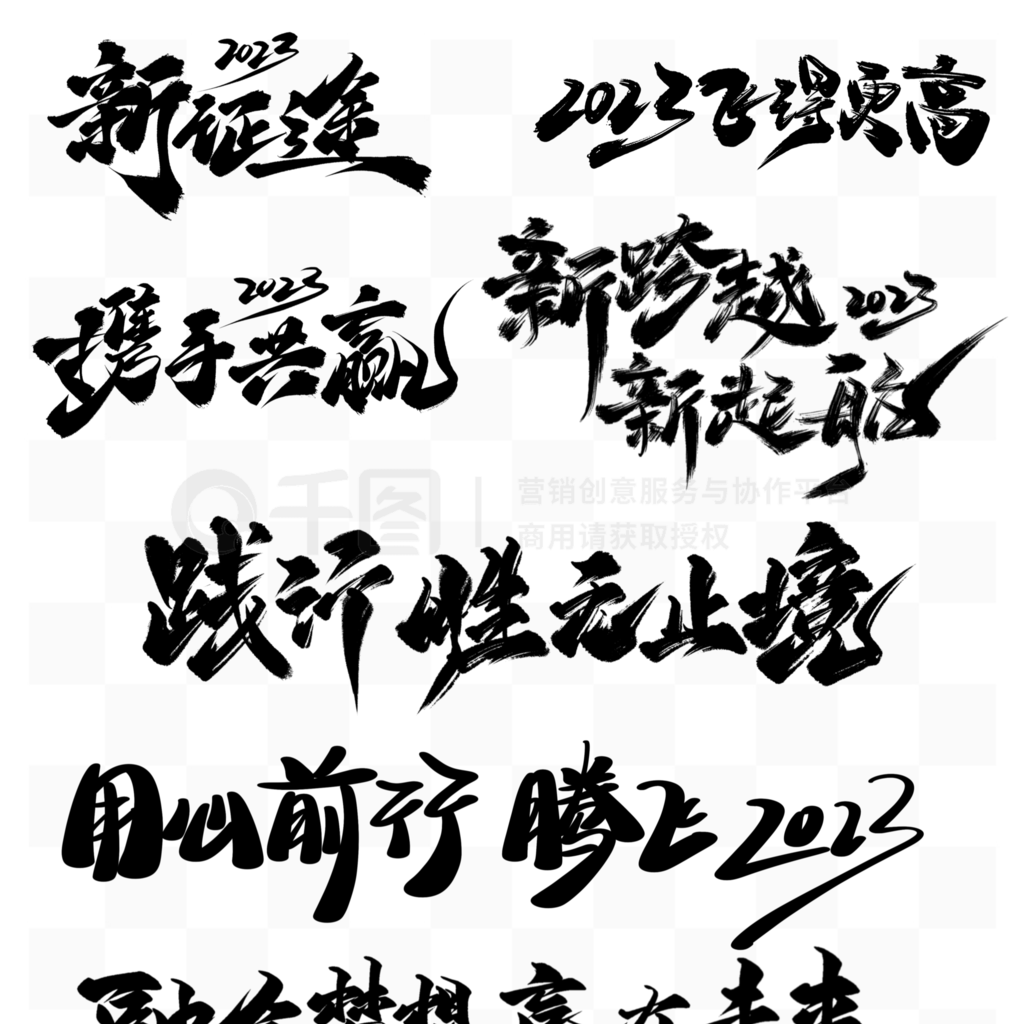 2023
新征途
2023飞得更高
2023
携手共赢
新跨越 2023
新起航
千图 营销创意服务与协作平台
商用请获取授权
践行 性无止境
用心前行 腾飞2023
梦想 赢在未来